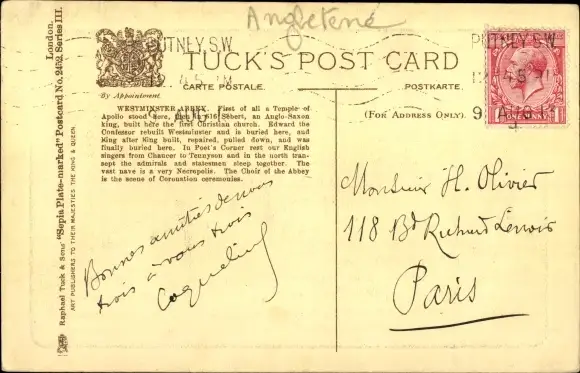 Angleterre
PUTNEY.S.W.
4.5 PM
TUCK'S POST CARD
CARTE POSTALE.
POSTKARTE.
By Appointment
(FOR ADDRESS ONLY).
PUTNEY.S.W.
4.5 PM
9 AUG
ONE PENNY
WESTMINSTER ABBEY. First of all a Temple of
Apollo stood here, then in 616 Sebert, an Anglo-Saxon
king, built here the first Christian church. Edward the
Confessor rebuilt Westminster and is buried here, and
King after King built, repaired, pulled down, and was
finally buried here. In Poet's Corner rest our English
singers from Chaucer to Tennyson and in the north tran-
sept the admirals and statesmen sleep together. The
vast nave is a very Necropolis. The Choir of the Abbey
is the scene of Coronation ceremonies.
Bonnes amitiés de nous
trois à vous trois
Monsieur H. Olivier
118 Bd Richard Lenoir
Paris
Raphael Tuck & Sons' "Sepia Plate-marked" Postcard No. 2452 Series III.
London.
ART PUBLISHERS TO THEIR MAJESTIES THE KING & QUEEN